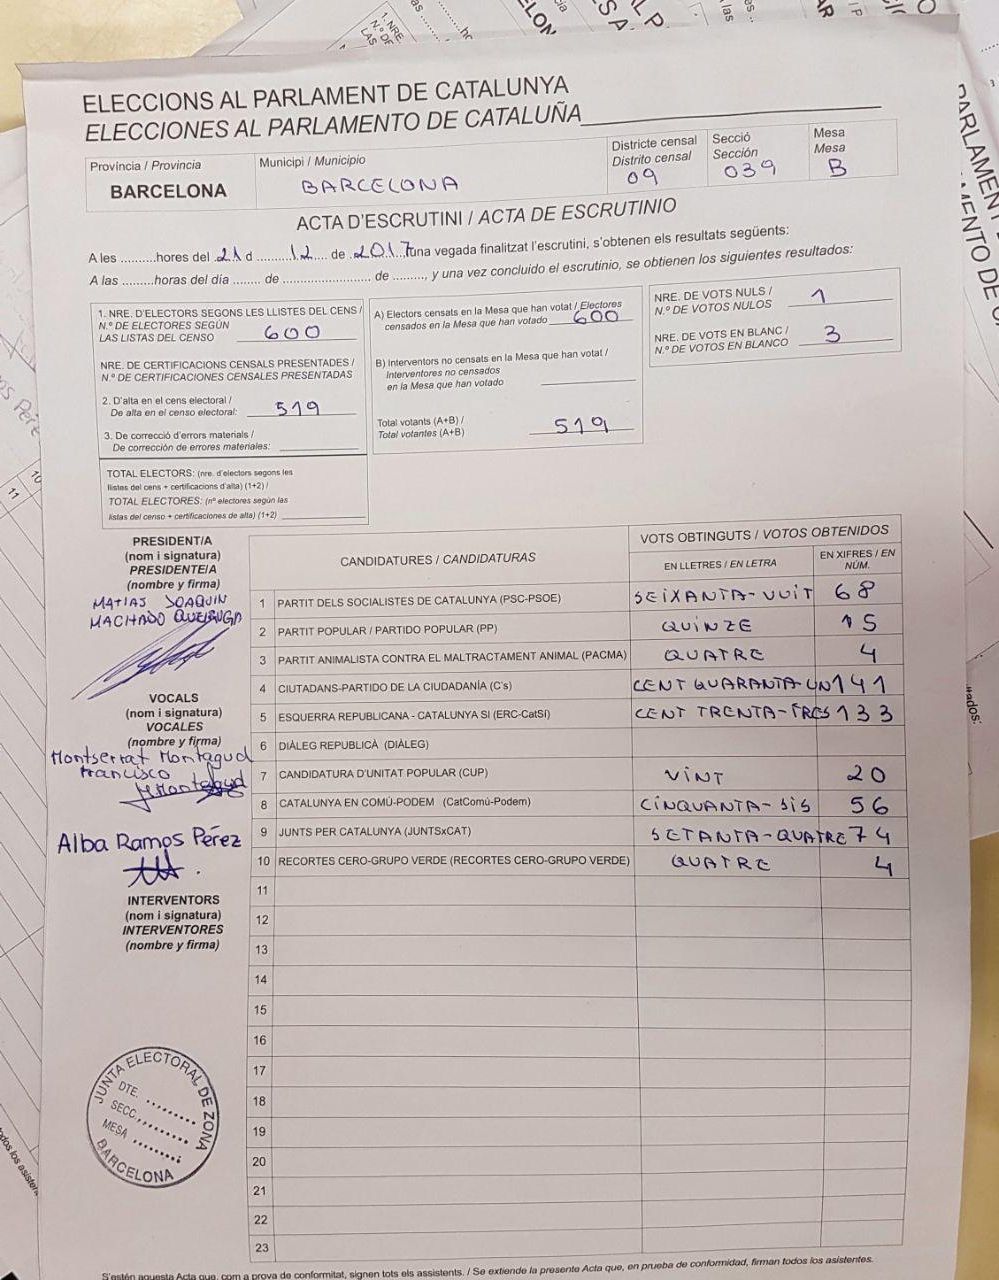 ELECCIONS AL PARLAMENT DE CATALUNYA
ELECCIONES AL PARLAMENTO DE CATALUÑA
Provincia / Provincia
BARCELONA
Municipi / Municipio
BARCELONA
Districte censal
Distrito censal
09
Secció
Sección
039
Mesa
Mesa
B
ACTA D'ESCRUTINI / ACTA DE ESCRUTINIO
A les ..........hores del .21 d ..........12... de .2017. una vegada finalitzat l'escrutini, s'obtenen els resultats següents:
A las .........horas del día ........ de ........................ de ........., y una vez concluido el escrutinio, se obtienen los siguientes resultados:
1. NRE. D'ELECTORS SEGONS LES LLISTES DEL CENS /
N.º DE ELECTORES SEGÚN
LAS LISTAS DEL CENSO 600
NRE. DE CERTIFICACIONS CENSALS PRESENTADES /
N.º DE CERTIFICACIONES CENSALES PRESENTADAS
2. D'alta en el cens electoral /
De alta en el censo electoral: 519
3. De correcció d'errors materials /
De corrección de errores materiales:
TOTAL ELECTORS: (nre. d'electors segons les
llistes del cens + certificacions d'alta) (1+2) /
TOTAL ELECTORES: (nº electores según las
listas del censo + certificaciones de alta) (1+2)
A) Electors censats en la Mesa que han votat / Electores
censados en la Mesa que han votado 600
B) Interventors no censats en la Mesa que han votat /
Interventores no censados
en la Mesa que han votado
Total votants (A+B) /
Total votantes (A+B) 519
NRE. DE VOTS NULS /
N.º DE VOTOS NULOS 1
NRE. DE VOTS EN BLANC /
N.º DE VOTOS EN BLANCO 3
PRESIDENT/A
(nom i signatura)
PRESIDENTE/A
(nombre y firma)
MATIAS JOAQUIN
MACHADO QUEIRUGA
VOCALS
(nom i signatura)
VOCALES
(nombre y firma)
Montserrat Montagud
Francisco
Alba Ramos Pérez
INTERVENTORS
(nom i signatura)
INTERVENTORES
(nombre y firma)
CANDIDATURES / CANDIDATURAS
VOTS OBTINGUTS / VOTOS OBTENIDOS
EN LLETRES / EN LETRA
EN XIFRES / EN
NÚM.
1 PARTIT DELS SOCIALISTES DE CATALUNYA (PSC-PSOE) SEIXANTA-VUIT 68
2 PARTIT POPULAR / PARTIDO POPULAR (PP) QUINZE 15
3 PARTIT ANIMALISTA CONTRA EL MALTRACTAMENT ANIMAL (PACMA) QUATRE 4
4 CIUTADANS-PARTIDO DE LA CIUDADANÍA (C's) CENT QUARANTA-UN 141
5 ESQUERRA REPUBLICANA - CATALUNYA SI (ERC-CatSí) CENT TRENTA-TRES 133
6 DIÀLEG REPUBLICÀ (DIÀLEG)
7 CANDIDATURA D'UNITAT POPULAR (CUP) VINT 20
8 CATALUNYA EN COMÚ-PODEM (CatComú-Podem) CINQUANTA-SIS 56
9 JUNTS PER CATALUNYA (JUNTSxCAT) SETANTA-QUATRE 74
10 RECORTES CERO-GRUPO VERDE (RECORTES CERO-GRUPO VERDE) QUATRE 4
11
12
13
14
15
16
17
18
19
20
21
22
23
JUNTA ELECTORAL DE ZONA
DTE. ........
SECC. ........
MESA ........
BARCELONA
S'estén aquesta Acta que, com a prova de conformitat, signen tots els assistents. / Se extiende la presente Acta que, en prueba de conformidad, firman todos los asistentes.